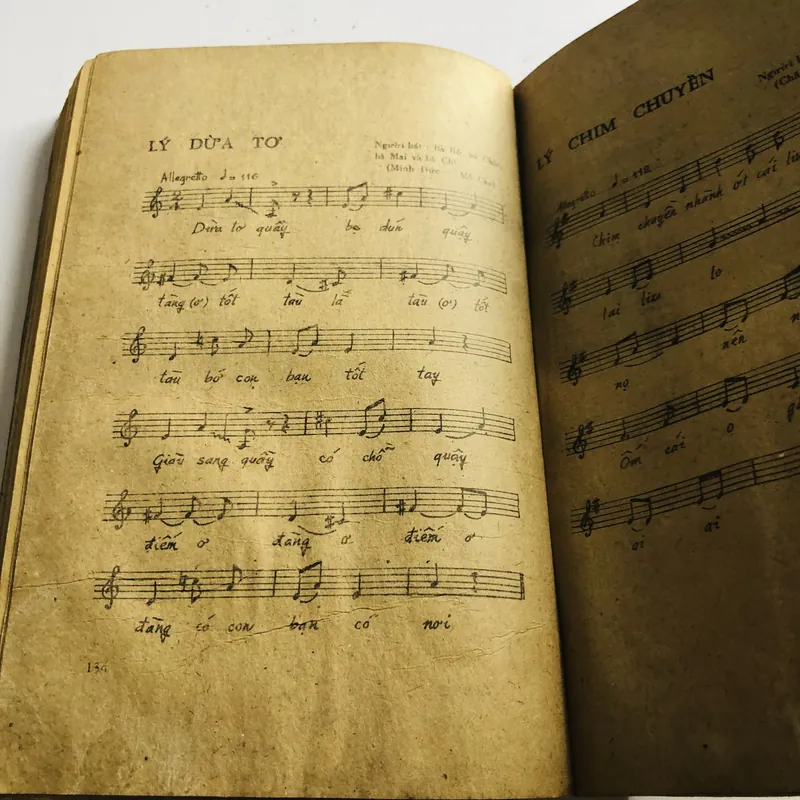 LÝ DỪA TƠ
Người hát : Bà
bà Mai và
(Minh Đức
Allegretto ♩ = 116
Dừa tơ quầy bẹ dún quầy
tàng (ơ) tốt tàu lã tàu (ơ) tốt
tàu bớ con bạn tốt tay
Giàu sang quầy có chỗ quậy
điếm ơ đàng ơ điếm ơ
đàng có con bạn có nơi
134
LÝ CHIM CHUYỀN
Người
Allegretto ♩ = 112
Chim chuyền nhành ớt cái líu
lai líu lo
nọ nên
Ốm cái o
ai ai